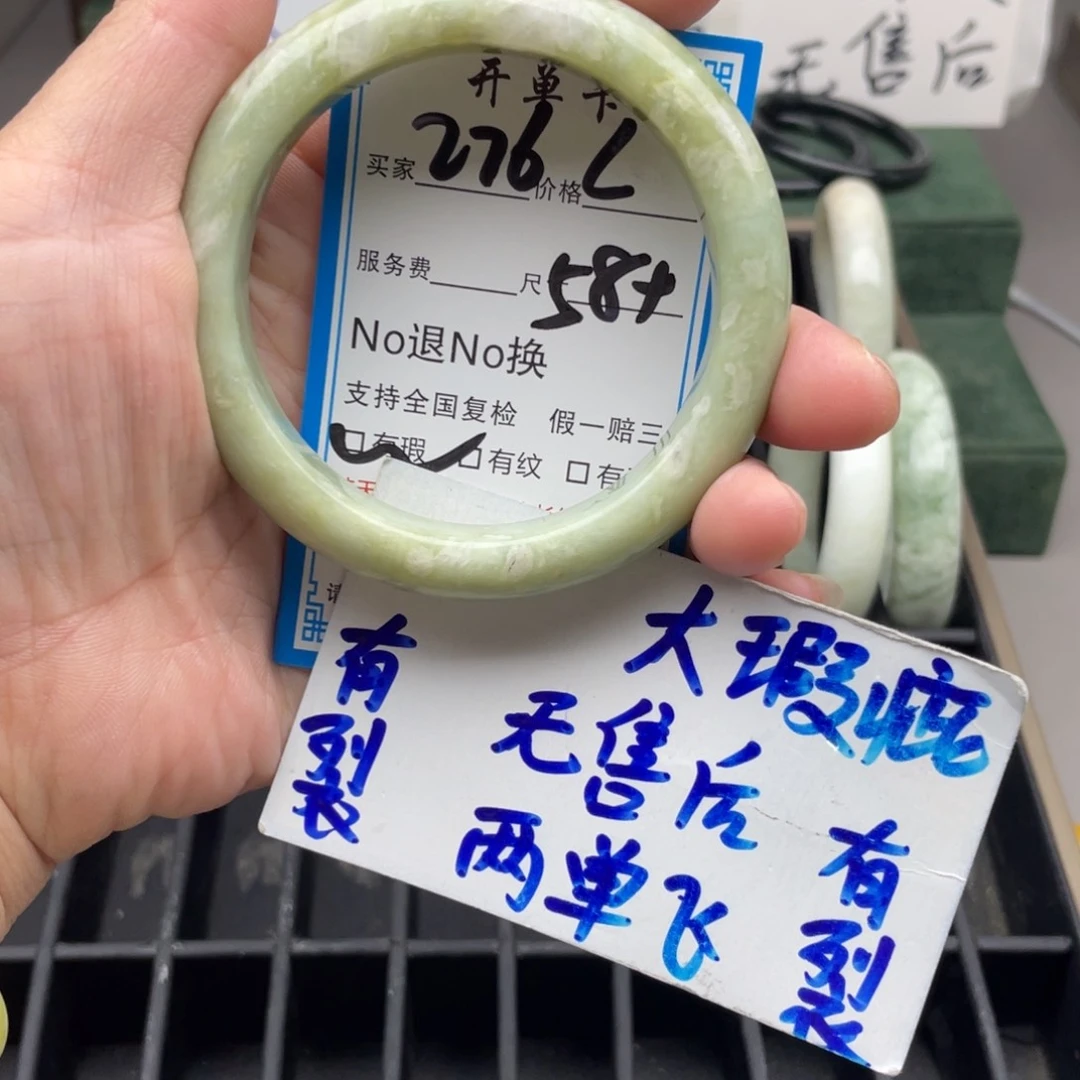 无售后
开单卡
买家 276 价格 L
服务费 尺 58+
No退No换
支持全国复检 假一赔三
□有瑕 □有纹 □有
大瑕疵
无售后
两单飞
有裂
有裂